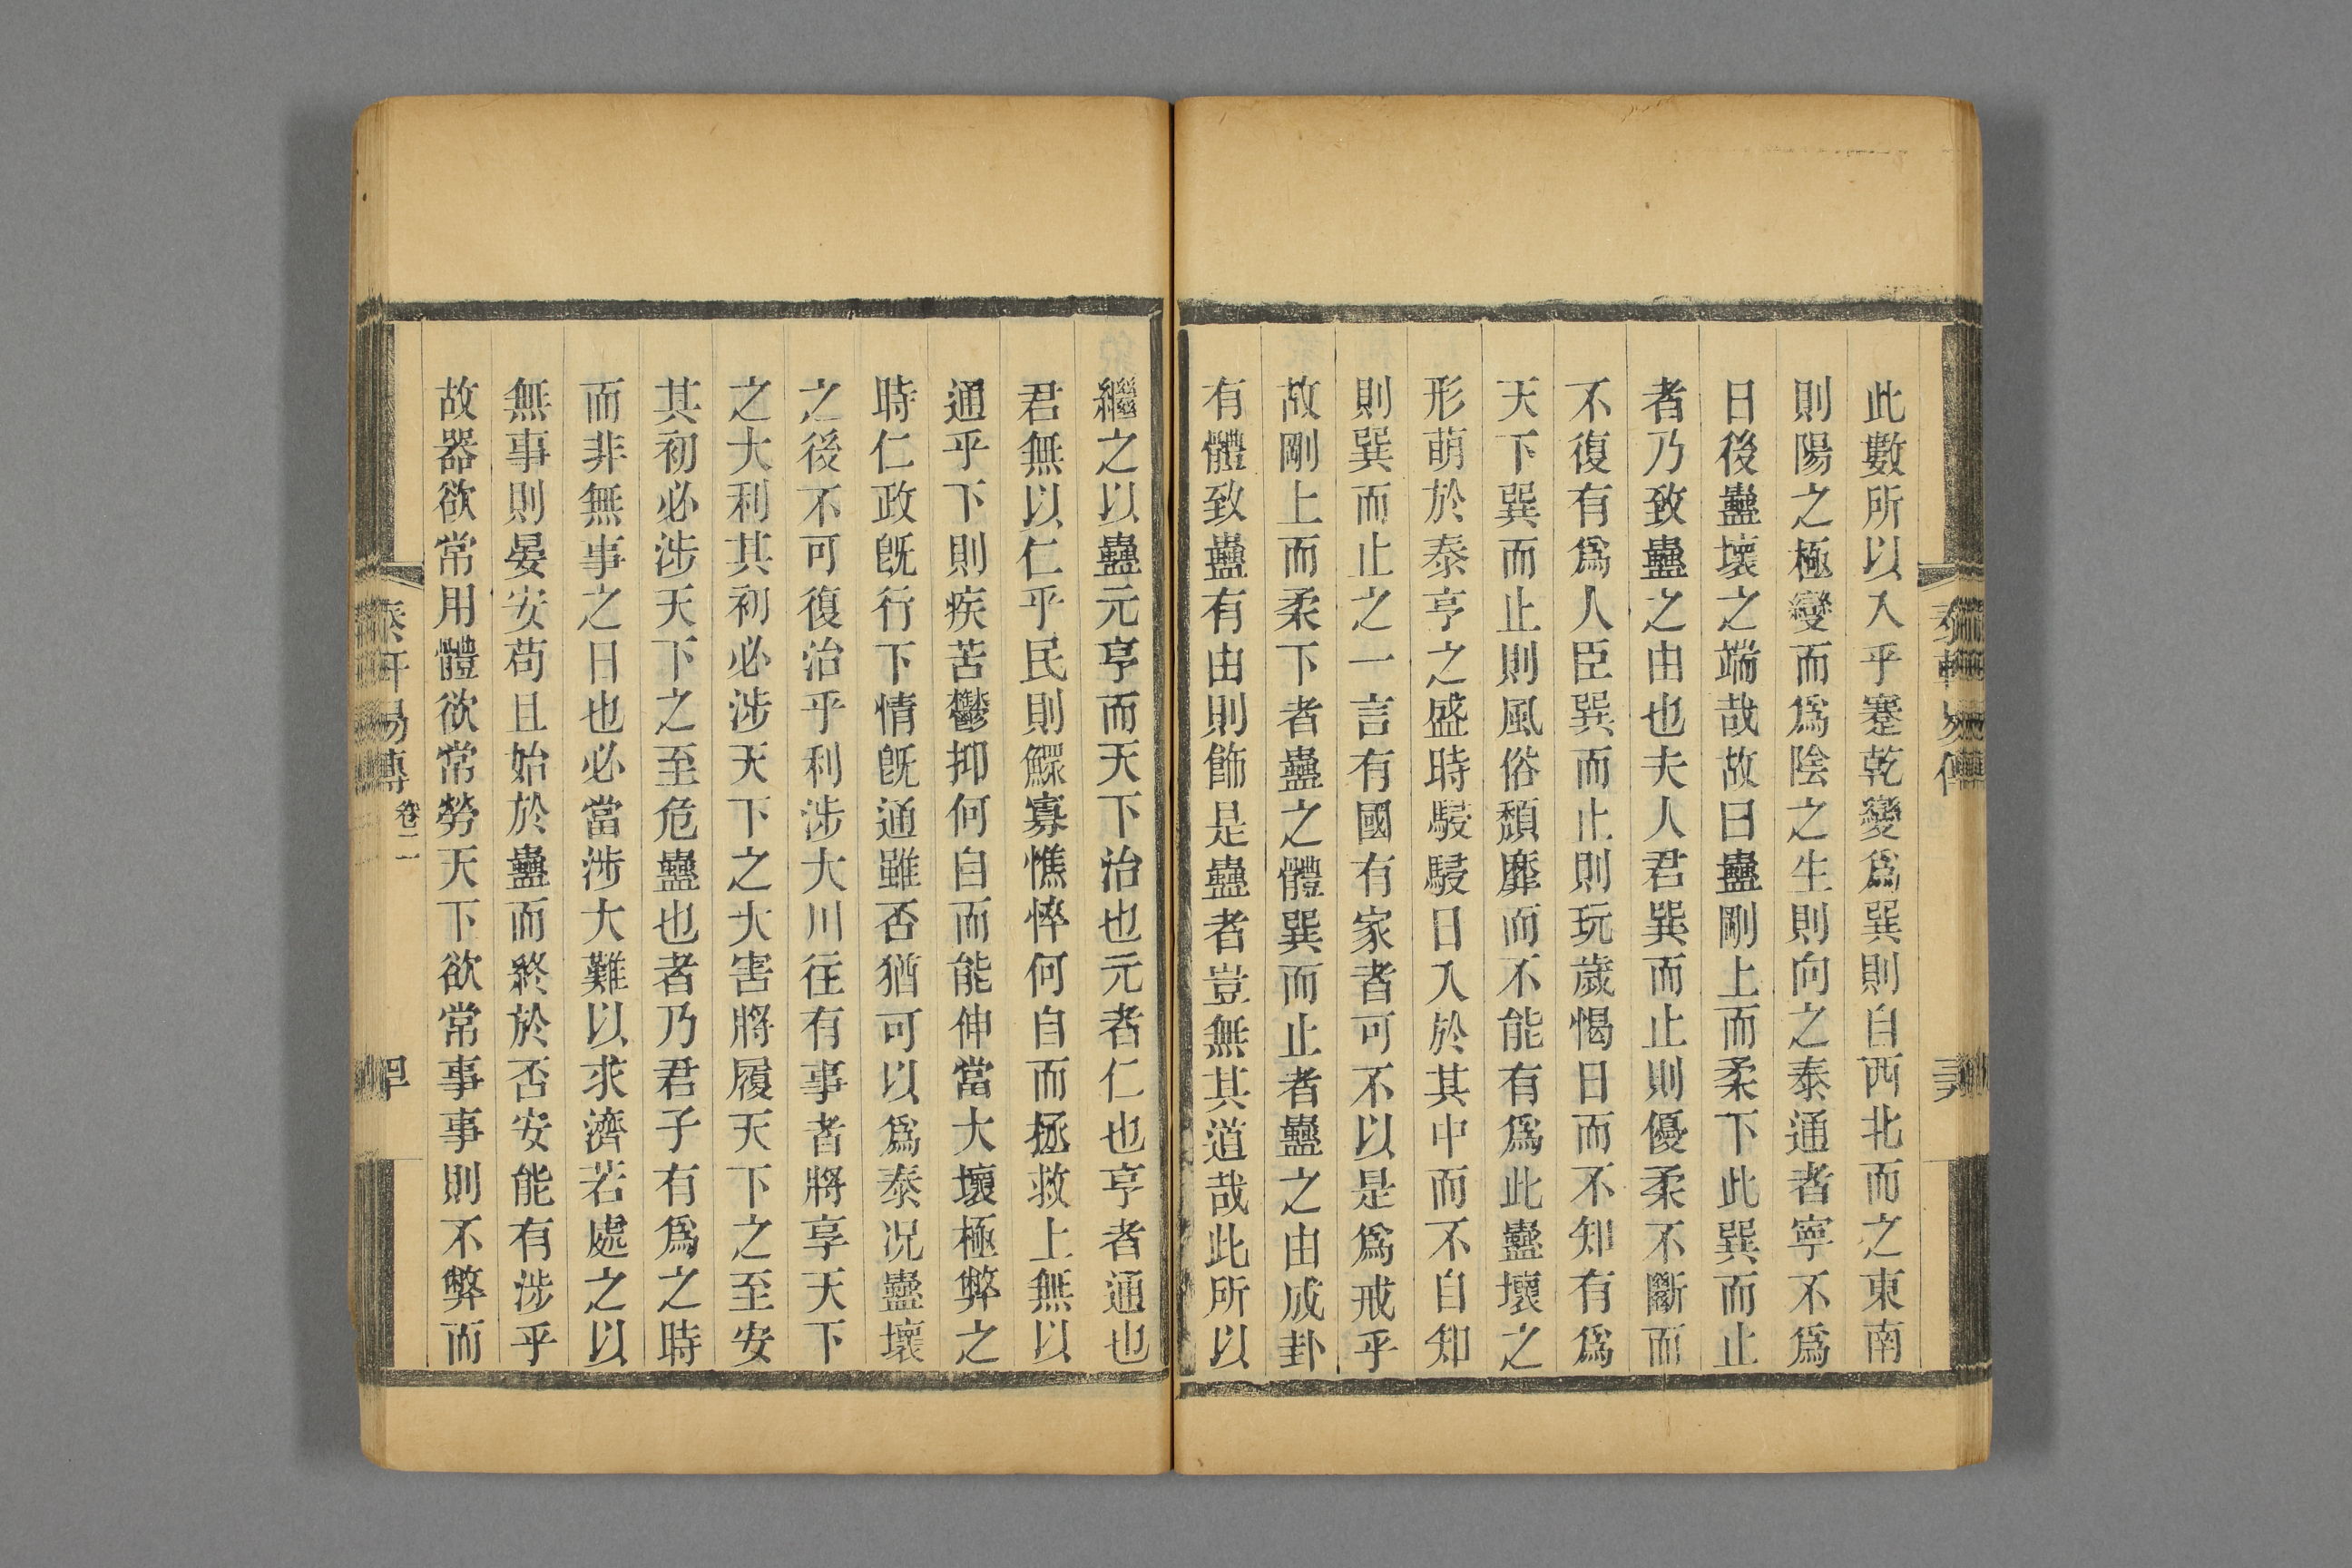 此數所以入乎蹇乾變爲巽則自西北而之東南
則陽之極變而爲陰之生則向之泰通者寧不爲
日後蠱壞之端哉故曰蠱剛上而柔下此巽而止
者乃致蠱之由也夫人君巽而止則優柔不斷而
不復有爲人臣巽而止則玩歲愒日而不知有爲
天下巽而止則風俗頹靡而不能有爲此蠱壞之
形萌於泰亨之盛時駸駸日入於其中而不自知
則巽而止之一言有國有家者可不以是爲戒乎
故剛上而柔下者蠱之體巽而止者蠱之由成卦
有體致蠱有由則飾是蠱者豈無其道哉此所以
繼之以蠱元亨而天下治也元者仁也亨者通也
君無以仁乎民則鰥寡憔悴何自而拯救上無以
通乎下則疾苦鬱抑何自而能伸當大壞極弊之
時仁政旣行下情旣通雖否猶可以爲泰况蠱壞
之後不可復治乎利涉大川往有事者將享天下
之大利其初必涉天下之大害將履天下之至安
其初必涉天下之至危蠱也者乃君子有爲之時
而非無事之日也必當涉大難以求濟若處之以
無事則晏安苟且始於蠱而終於否安能有涉乎
故器欲常用體欲常勞天下欲常事事則不弊而
易傳 卷二